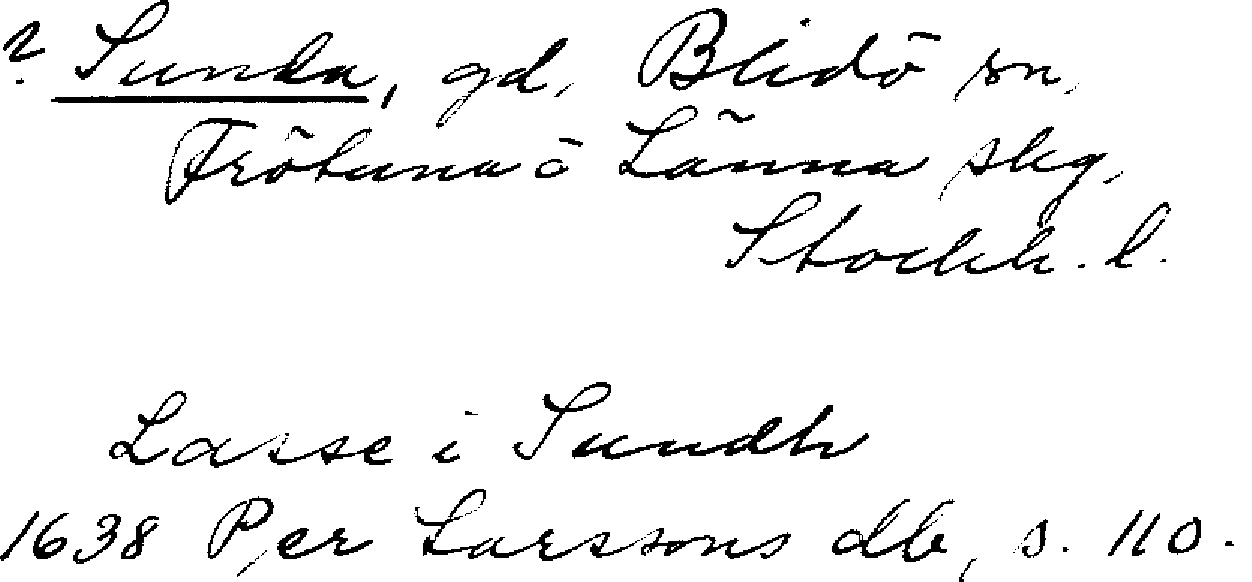 ? Sunda, gd, Blidö sn,
Frötuna o Länna skg,
Stockh. l.
Lasse i Sundh
1638 Per Larssons db, s. 110.